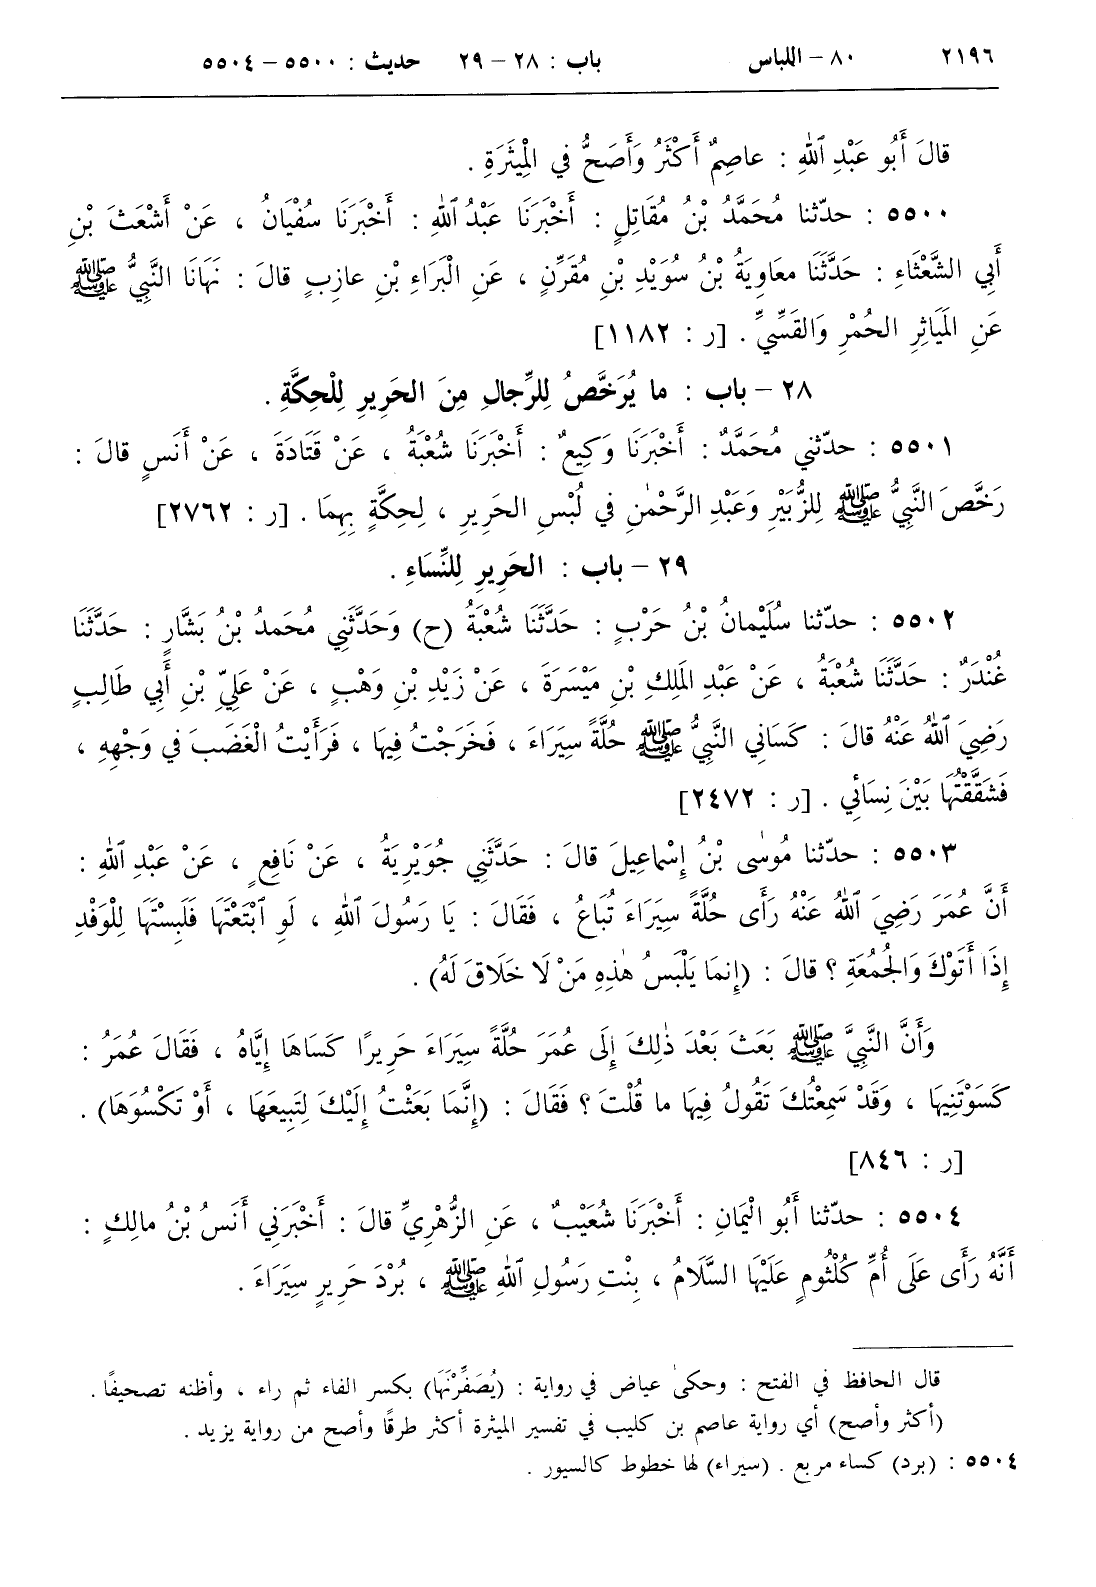 ٢١٩٦ ٨٠ – اللباس باب : ٢٨ – ٢٩ حديث : ٥٥٠٠ – ٥٥٠٤
قالَ أَبُو عَبْدِ ٱللهِ : عاصِمٌ أَكْثَرُ وَأَصَحُّ في الْمِيثَرَةِ .
٥٥٠٠ : حدّثنا مُحَمَّدُ بْنُ مُقَاتِلٍ : أَخْبَرَنَا عَبْدُ ٱللهِ : أَخْبَرَنَا سُفْيَانُ ، عَنْ أَشْعَثَ بْنِ
أَبِي الشَّعْثَاءِ : حَدَّثَنَا معَاوِيَةُ بْنُ سُوَيْدِ بْنِ مُقَرِّنٍ ، عَنِ الْبَرَاءِ بْنِ عازِبٍ قالَ : نَهَانَا النَّبِيُّ ﷺ
عَنِ المَيَاثِرِ الحُمْرِ وَالقَسِّيِّ . [ر : ١١٨٢]
٢٨ – باب : ما يُرَخَّصُ لِلرِّجالِ مِنَ الحَرِيرِ لِلْحِكَّةِ .
٥٥٠١ : حدّثني مُحَمَّدٌ : أَخْبَرَنَا وَكِيعٌ : أَخْبَرَنَا شُعْبَةُ ، عَنْ قَتَادَةَ ، عَنْ أَنَسٍ قالَ :
رَخَّصَ النَّبِيُّ ﷺ لِلزُّبَيْرِ وَعَبْدِ الرَّحْمٰنِ في لُبْسِ الحَرِيرِ ، لِحِكَّةٍ بِهِمَا . [ر : ٢٧٦٢]
٢٩ – باب : الحَرِيرِ لِلنِّسَاءِ .
٥٥٠٢ : حدّثنا سُلَيْمانُ بْنُ حَرْبٍ : حَدَّثَنَا شُعْبَةُ (ح) وَحَدَّثَنِي مُحَمدُ بْنُ بَشَّارٍ : حَدَّثَنَا
غُنْدَرٌ : حَدَّثَنَا شُعْبَةُ ، عَنْ عَبْدِ المَلِكِ بْنِ مَيْسَرَةَ ، عَنْ زَيْدِ بْنِ وَهْبٍ ، عَنْ عَلِيِّ بْنِ أَبِي طَالِبٍ
رَضِيَ ٱللهُ عَنْهُ قالَ : كَسَانِي النَّبِيُّ ﷺ حُلَّةً سِيَرَاءَ ، فَخَرَجْتُ فِيهَا ، فَرَأَيْتُ الْغَضَبَ في وَجْهِهِ ،
فَشَقَّقْتُهَا بَيْنَ نِسَائِي . [ر : ٢٤٧٢]
٥٥٠٣ : حدّثنا مُوسٰى بْنُ إِسْماعِيلَ قالَ : حَدَّثَنِي جُوَيْرِيَةُ ، عَنْ نَافِعٍ ، عَنْ عَبْدِ ٱللهِ :
أَنَّ عُمَرَ رَضِيَ ٱللهُ عَنْهُ رَأَى حُلَّةً سِيَرَاءَ تُبَاعُ ، فَقَالَ : يَا رَسُولَ ٱللهِ ، لَوِ ٱبْتَعْتَهَا فَلَبِسْتَهَا لِلْوَفْدِ
إِذَا أَتَوْكَ وَالْجُمُعَةِ ؟ قالَ : (إِنمَا يَلْبَسُ هٰذِهِ مَنْ لَا خَلَاقَ لَهُ) .
وَأَنَّ النَّبِيَّ ﷺ بَعَثَ بَعْدَ ذٰلِكَ إِلَى عُمَرَ حُلَّةً سِيَرَاءَ حَرِيرًا كَسَاهَا إِيَّاهُ ، فَقَالَ عُمَرُ :
كَسَوْتَنِيهَا ، وَقَدْ سَمِعْتُكَ تَقُولُ فِيهَا ما قُلْتَ ؟ فَقَالَ : (إِنَّمَا بَعَثْتُ إِلَيْكَ لِتَبِيعَهَا ، أَوْ تَكْسُوَهَا) .
[ر : ٨٤٦]
٥٥٠٤ : حدّثنا أَبُو الْيَمَانِ : أَخْبَرَنَا شُعَيْبٌ ، عَنِ الزُّهْرِيِّ قالَ : أَخْبَرَنِي أَنَسُ بْنُ مالِكٍ :
أَنَّهُ رَأَى عَلَى أُمِّ كُلْثُومٍ عَلَيْهَا السَّلَامُ ، بِنْتِ رَسُولِ ٱللهِ ﷺ ، بُرْدَ حَرِيرٍ سِيَرَاءَ .
قال الحافظ في الفتح : وحكىٰ عياض في رواية : (يُصَفِّرْنَهَا) بكسر الفاء ثم راء ، وأظنه تصحيفًا .
(أكثر وأصح) أي رواية عاصم بن كليب في تفسير الميثرة أكثر طرقًا وأصح من رواية يزيد .
٥٥٠٤ : (برد) كساء مربع . (سيراء) لها خطوط كالسيور .